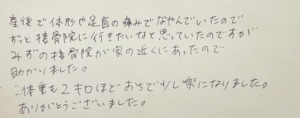 産後で体形や足首の痛みでなやんでいたので
ずっと接骨院に行きたいなと思っていたのですが
みずの接骨院が家の近くにあったので
助かりました。
体重も2キロほどおちて少し楽になりました。
ありがとうございました。